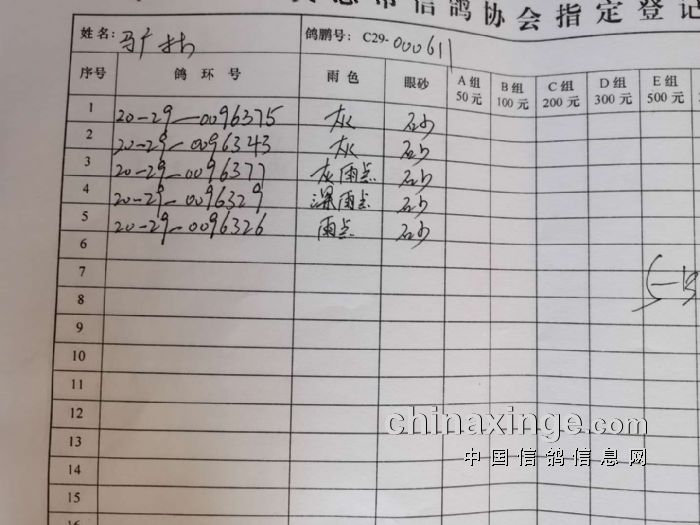 市信鸽协会指定登记
姓名: 鸽棚号: C29-000611
序号 鸽环号 雨色 眼砂 A组 50元 B组 100元 C组 200元 D组 300元 E组 500元
1 20-29-0096375 灰 砂
2 20-29-0096343 灰 砂
3 20-29-0096377 灰雨点 砂
4 20-29-0096329 深雨点 砂
5 20-29-0096326 雨点 砂
6
7
8
9
10
11
12
13
14
15
16
chinaxinge.com
中国信鸽信息网